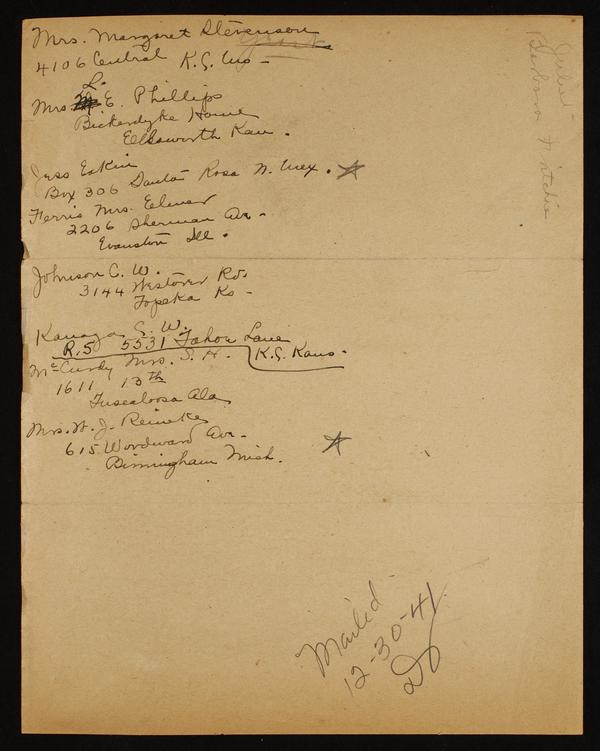 Mrs. Margaret Stevenson
4106 Central K.C. Mo -
L.
Mrs. E. Phillips
Bickerdyke Home
Ellsworth Kan.
Jess Eskin
Box 306 Santa Rosa N. Mex.
Ferris Mrs. Elmer
2206 Sherman Av -
Evanston Ill.
Johnson C. W.
3144 Westover Rd.
Topeka Ks -
Kanaga C. W.
R.5 5531 Tahoe Lane
K.C. Kans.
McCurdy Mrs. S. H.
1611 13th
Tuscaloosa Ala
Mrs. H. J. Reineke
615 Woodward Ave -
Birmingham Mich.
Juliet -
Barbara Fritchie
Mailed -
12-30-41.